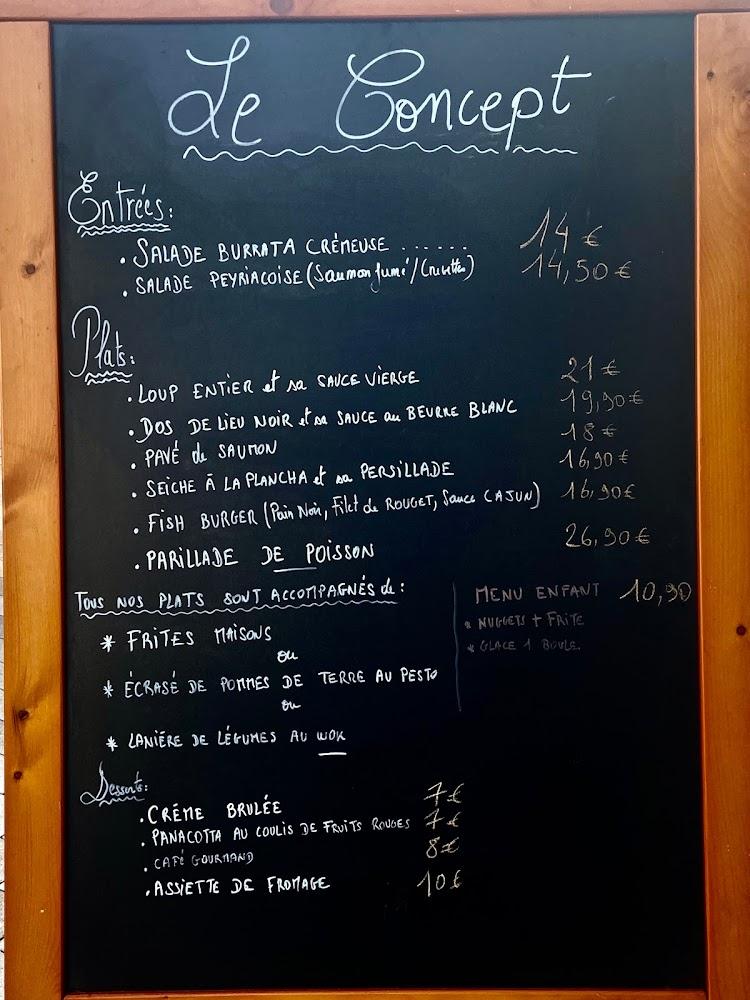 Le Concept
Entrées:
. SALADE BURRATA CRÉMEUSE ...... 14 €
. SALADE PEYRIACOISE (Saumon fumé/Crevettes) 14,50 €
Plats:
. LOUP ENTIER et sa SAUCE VIERGE 21 €
. DOS DE LIEU NOIR et sa SAUCE au BEURRE BLANC 19,90 €
. PAVÉ de SAUMON 18 €
. SEICHE À LA PLANCHA et sa PERSILLADE 16,90 €
. FISH BURGER (Pain Noir, Filet de ROUGET, Sauce CAJUN) 16,90 €
. PARILLADE DE POISSON 26,90 €
TOUS NOS PLATS SONT ACCOMPAGNÉS de :
* FRITES MAISONS
ou
* ÉCRASÉ DE POMMES DE TERRE AU PESTO
ou
* LANIÉRE DE LÉGUMES AU WOK
MENU ENFANT 10,90
* NUGGETS + FRITE
* GLACE 1 BOULE.
Desserts:
. CRÉME BRULÉE 7 €
. PANACOTTA AU COULIS DE FRUITS ROUGES 7 €
. CAFÉ GOURMAND 8 €
. ASSIETTE DE FROMAGE 10 €